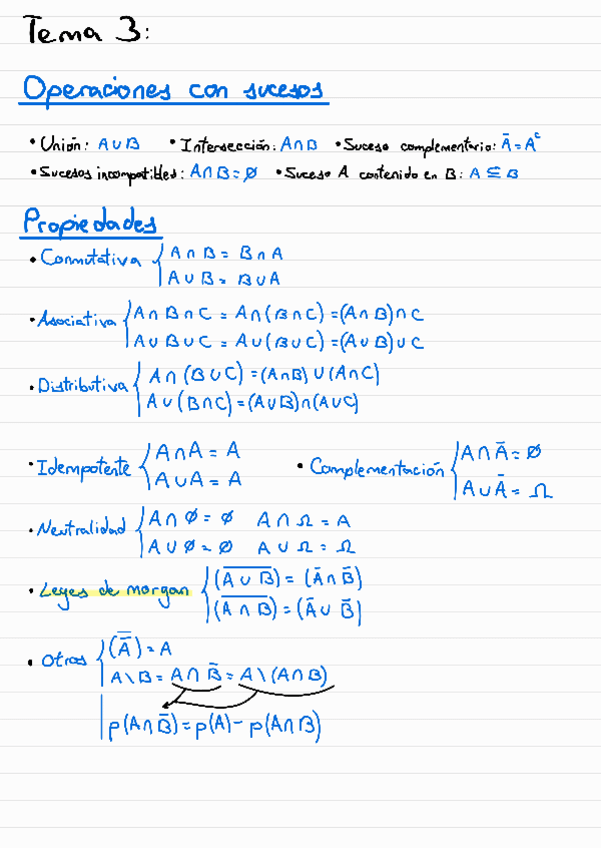 Tema 3:
Operaciones con sucesos
• Unión: A∪B • Intersección: A∩B • Suceso complementario: Ā = Aᶜ
• Sucesos incompatibles: A∩B = ∅ • Suceso A contenido en B: A ⊆ B
Propiedades
• Conmutativa { A ∩ B = B ∩ A
A ∪ B = B ∪ A
• Asociativa { A ∩ B ∩ C = A ∩ (B ∩ C) = (A ∩ B) ∩ C
A ∪ B ∪ C = A ∪ (B ∪ C) = (A ∪ B) ∪ C
• Distributiva { A ∩ (B ∪ C) = (A∩B) ∪ (A∩C)
A ∪ (B∩C) = (A∪B)∩(A∪C)
• Idempotente { A ∩ A = A
A ∪ A = A
• Complementación { A ∩ Ā = ∅
A ∪ Ā = Ω
• Neutralidad { A ∩ ∅ = ∅ A ∩ Ω = A
A ∪ ∅ = ∅ A ∪ Ω = Ω
• Leyes de morgan { (A̅ ̅∪̅ ̅B̅) = (Ā ∩ B̄)
(A̅ ̅∩̅ ̅B̅) = (Ā ∪ B̄)
• Otras { (A̿) = A
A \ B = A ∩ B̄ = A \ (A ∩ B)
p(A∩B̄) = p(A) - p(A∩B)